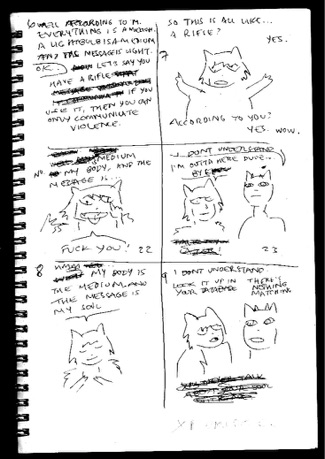 WELL ACCORDING TO M.
EVERYTHING IS A MEDIUM.
A LIGHTBULB IS A MEDIUM
AND THE MESSAGE IS LIGHT.
OK LETS SAY YOU
HAVE A RIFLE
IF YOU
USE IT, THEN YOU CAN
ONLY COMMUNICATE
VIOLENCE.
7
SO THIS IS ALL LIKE...
A RIFLE?
YES.
ACCORDING TO YOU?
YES. WOW.
MEDIUM
MY BODY, AND THE
MESSAGE IS...
FUCK YOU!
22
I DONT UNDERSTAND
I'M OUTTA HERE DUDE..
BYE
23
8
MY BODY IS
THE MEDIUM AND
THE MESSAGE IS
MY SOUL
9
I DONT UNDERSTAND
LOOK IT UP IN
YOUR DATABASE
THERE'S
NOTHING
MATCHING